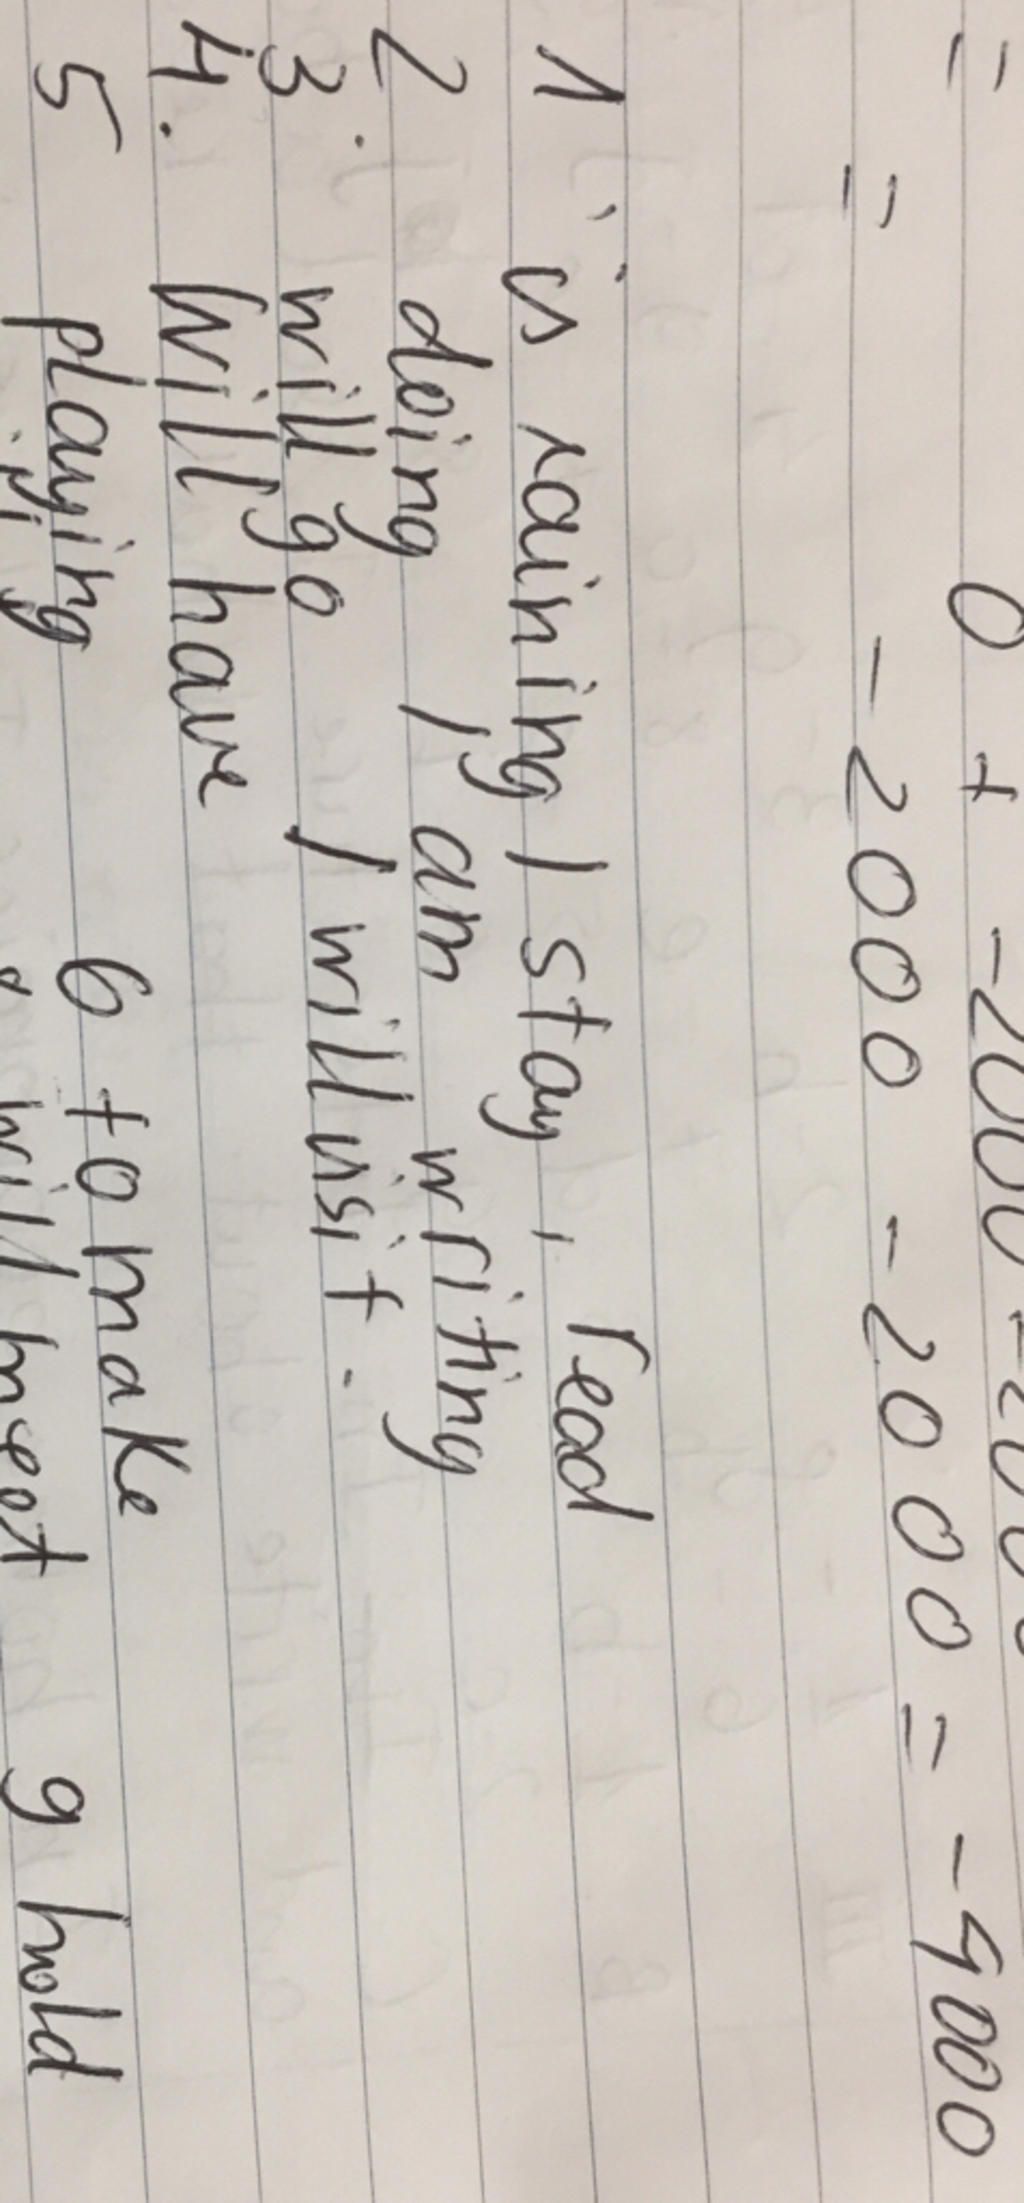 = 0 + -2000 -2000
= -2000 -2000 = -4000
1 is raining / stay, read
2 doing / am writing
3. will go / will usit.
4. Will have
5 playing 6 to make 9 hold
will meet